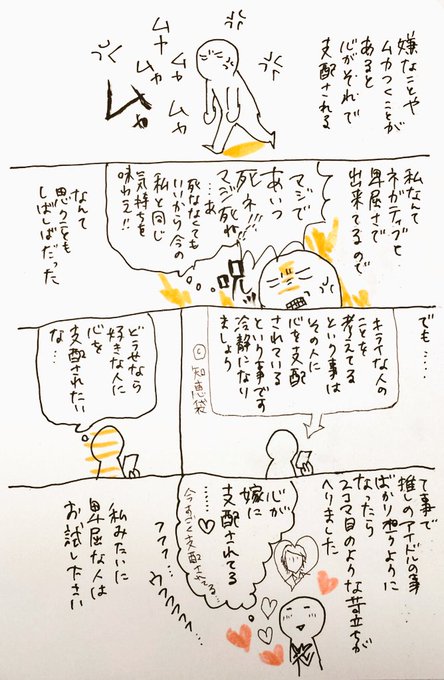 嫌なことや
ムカつくことが
あると
心がそれで
支配される
ムカ
ムカ
ムカ
ムカ
私なんて
ネガティブと
卑屈さで
出来てるので
マジで
あいつ
死ネ!!!
マジ死ね!!
…あ
死ななくても
いいから今の
私と同じ
気持ちを
味わえ!!
呪
なんて
思うことも
しばしばだった
でも……
キライな人の
ことを
考えてる
という事は
その人に
心を支配
されている
という事です
冷静になり
ましょう
©知恵袋
どうせなら
好きな人に
心を
支配されたい
な…
て事で
推しのアイドルの事
ばかり想うように
なったら
2コマ目のような苛立ちが
へりました
心が
嫁に
支配されてる
……♡
今すごく支配させてる…
フフフ…
私みたいに
卑屈な人は
お試し下さい